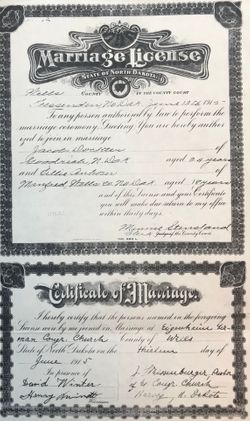 Marriage License
STATE OF NORTH DAKOTA
Wells COUNTY IN THE COUNTY COURT
Fessenden No Dak June 12th 1915
To any person authorized by law to perform the
marriage ceremony, Greeting: You are hereby author-
ized to join in marriage
Jacob of
Goodrich N. Dak aged 24 years
and of
Manfred Wells Co No Dak aged 18 years
and of this License and your Certificate
you will make due return to my office
within thirty days.
Minnie
Certificate of Marriage.
I hereby certify that the persons named in the foregoing
License were by me joined in Marriage at Eigenheim Ger-
man Congr. Church County of Wells
State of North Dakota on the day of
June 1915
In presence of J. Pastor
David Winter of Congr. Church
Henry Harvey N. Dakota